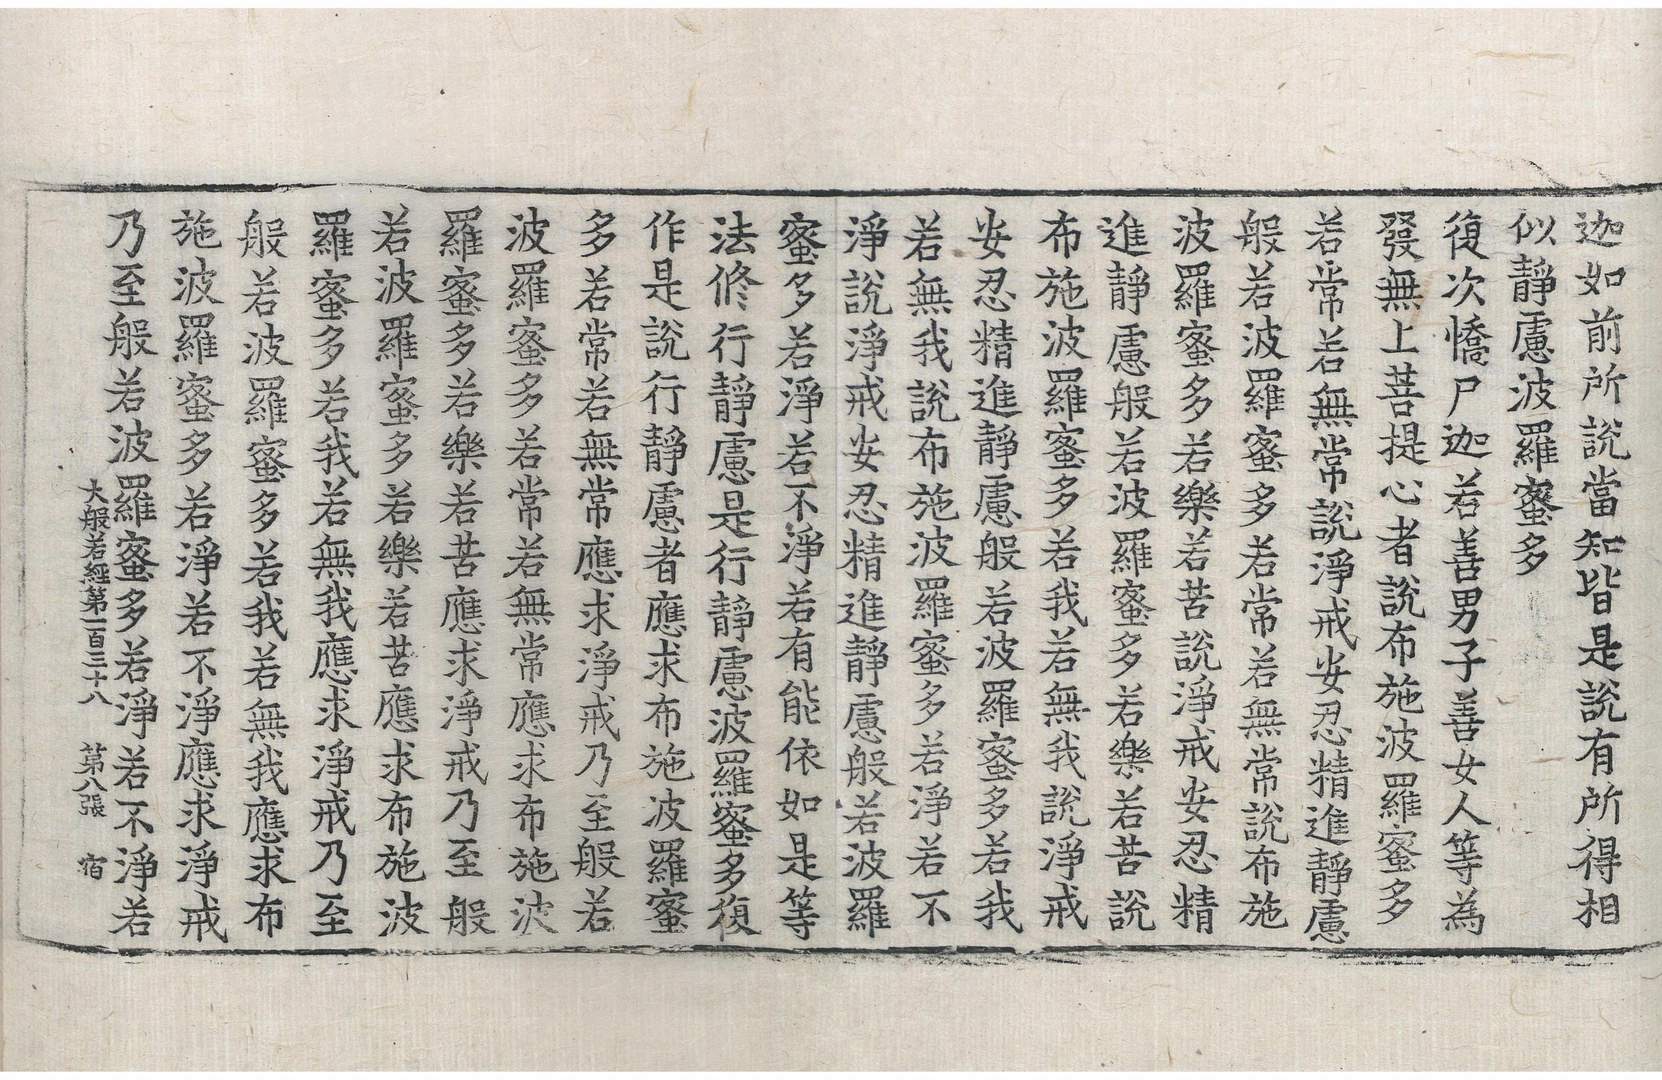 迦如前所說當知皆是說有所得相
似靜慮波羅蜜多
復次憍尸迦若善男子善女人等為
發無上菩提心者說布施波羅蜜多
若常若無常說淨戒安忍精進靜慮
般若波羅蜜多若常若無常說布施
波羅蜜多若樂若苦說淨戒安忍精
進靜慮般若波羅蜜多若樂若苦說
布施波羅蜜多若我若無我說淨戒
安忍精進靜慮般若波羅蜜多若我
若無我說布施波羅蜜多若淨若不
淨說淨戒安忍精進靜慮般若波羅
蜜多若淨若不淨若有能依如是等
法修行靜慮是行靜慮波羅蜜多復
作是說行靜慮者應求布施波羅蜜
多若常若無常應求淨戒乃至般若
波羅蜜多若常若無常應求布施波
羅蜜多若樂若苦應求淨戒乃至般
若波羅蜜多若樂若苦應求布施波
羅蜜多若我若無我應求淨戒乃至
般若波羅蜜多若我若無我應求布
施波羅蜜多若淨若不淨應求淨戒
乃至般若波羅蜜多若淨若不淨若
大般若經第一百三十八 第八張 宿